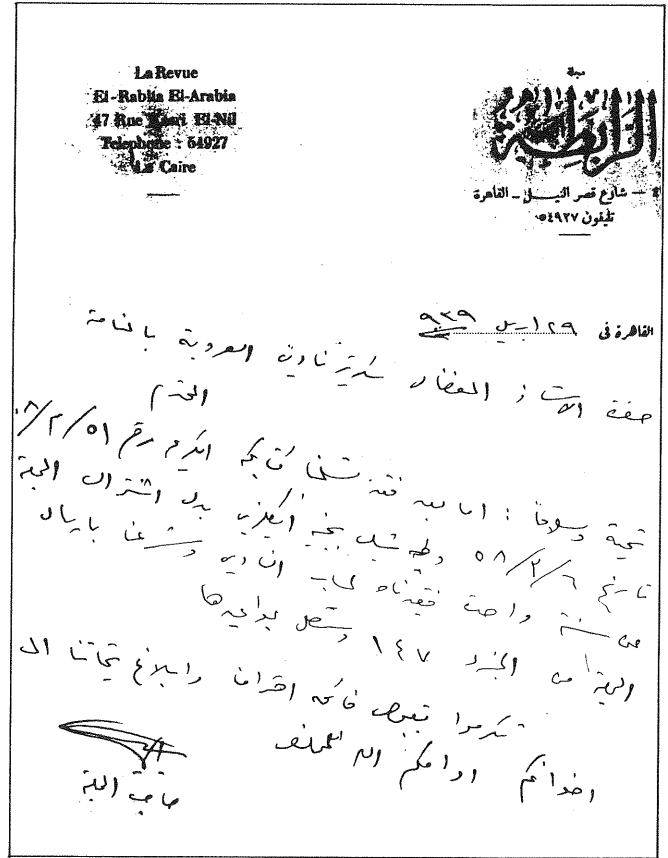 La Revue
El-Rabita El-Arabia
47 Rue Kasri El-Nil
Telephone : 54927
Le Caire
مجلة
الرابطة العربية
شارع قصر النيل ـ القاهرة
تليفون ٥٤٩٢٧
القاهرة في ٢٩ ابريل ٩٣٩
حضرة الاستاذ المفضال سكرتير نادي العروبة بالمنامة
المحترم
تحية وسلاماً : اما بعد فقد تسلمنا كتابكم الكريم رقم
تاريخ ٥٨/٢/٦ وطيه شيك بجنيه انكليزي بدل اشتراك المجلة
عن سنة واحدة قيدناه لحساب النادي وشرعنا بارسال
المجلة من الجزء ١٤٧
تكرموا بقبول فائق احترامنا وابلاغ تحياتنا الى
اخوانكم ادامكم الله للمخلص
صاحب المجلة